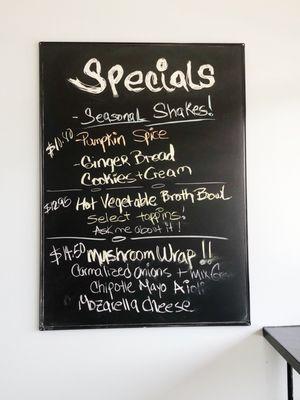 Specials
- Seasonal Shakes!
- Pumpkin Spice
- Ginger Bread
Cookies + Cream
Hot Vegetable Broth Bowl
Select toppins!
Ask me about it!
$14.50 Mushroom Wrap !!
Carmalized onions + mix
Chipotle Mayo Aioli
Mozarella Cheese